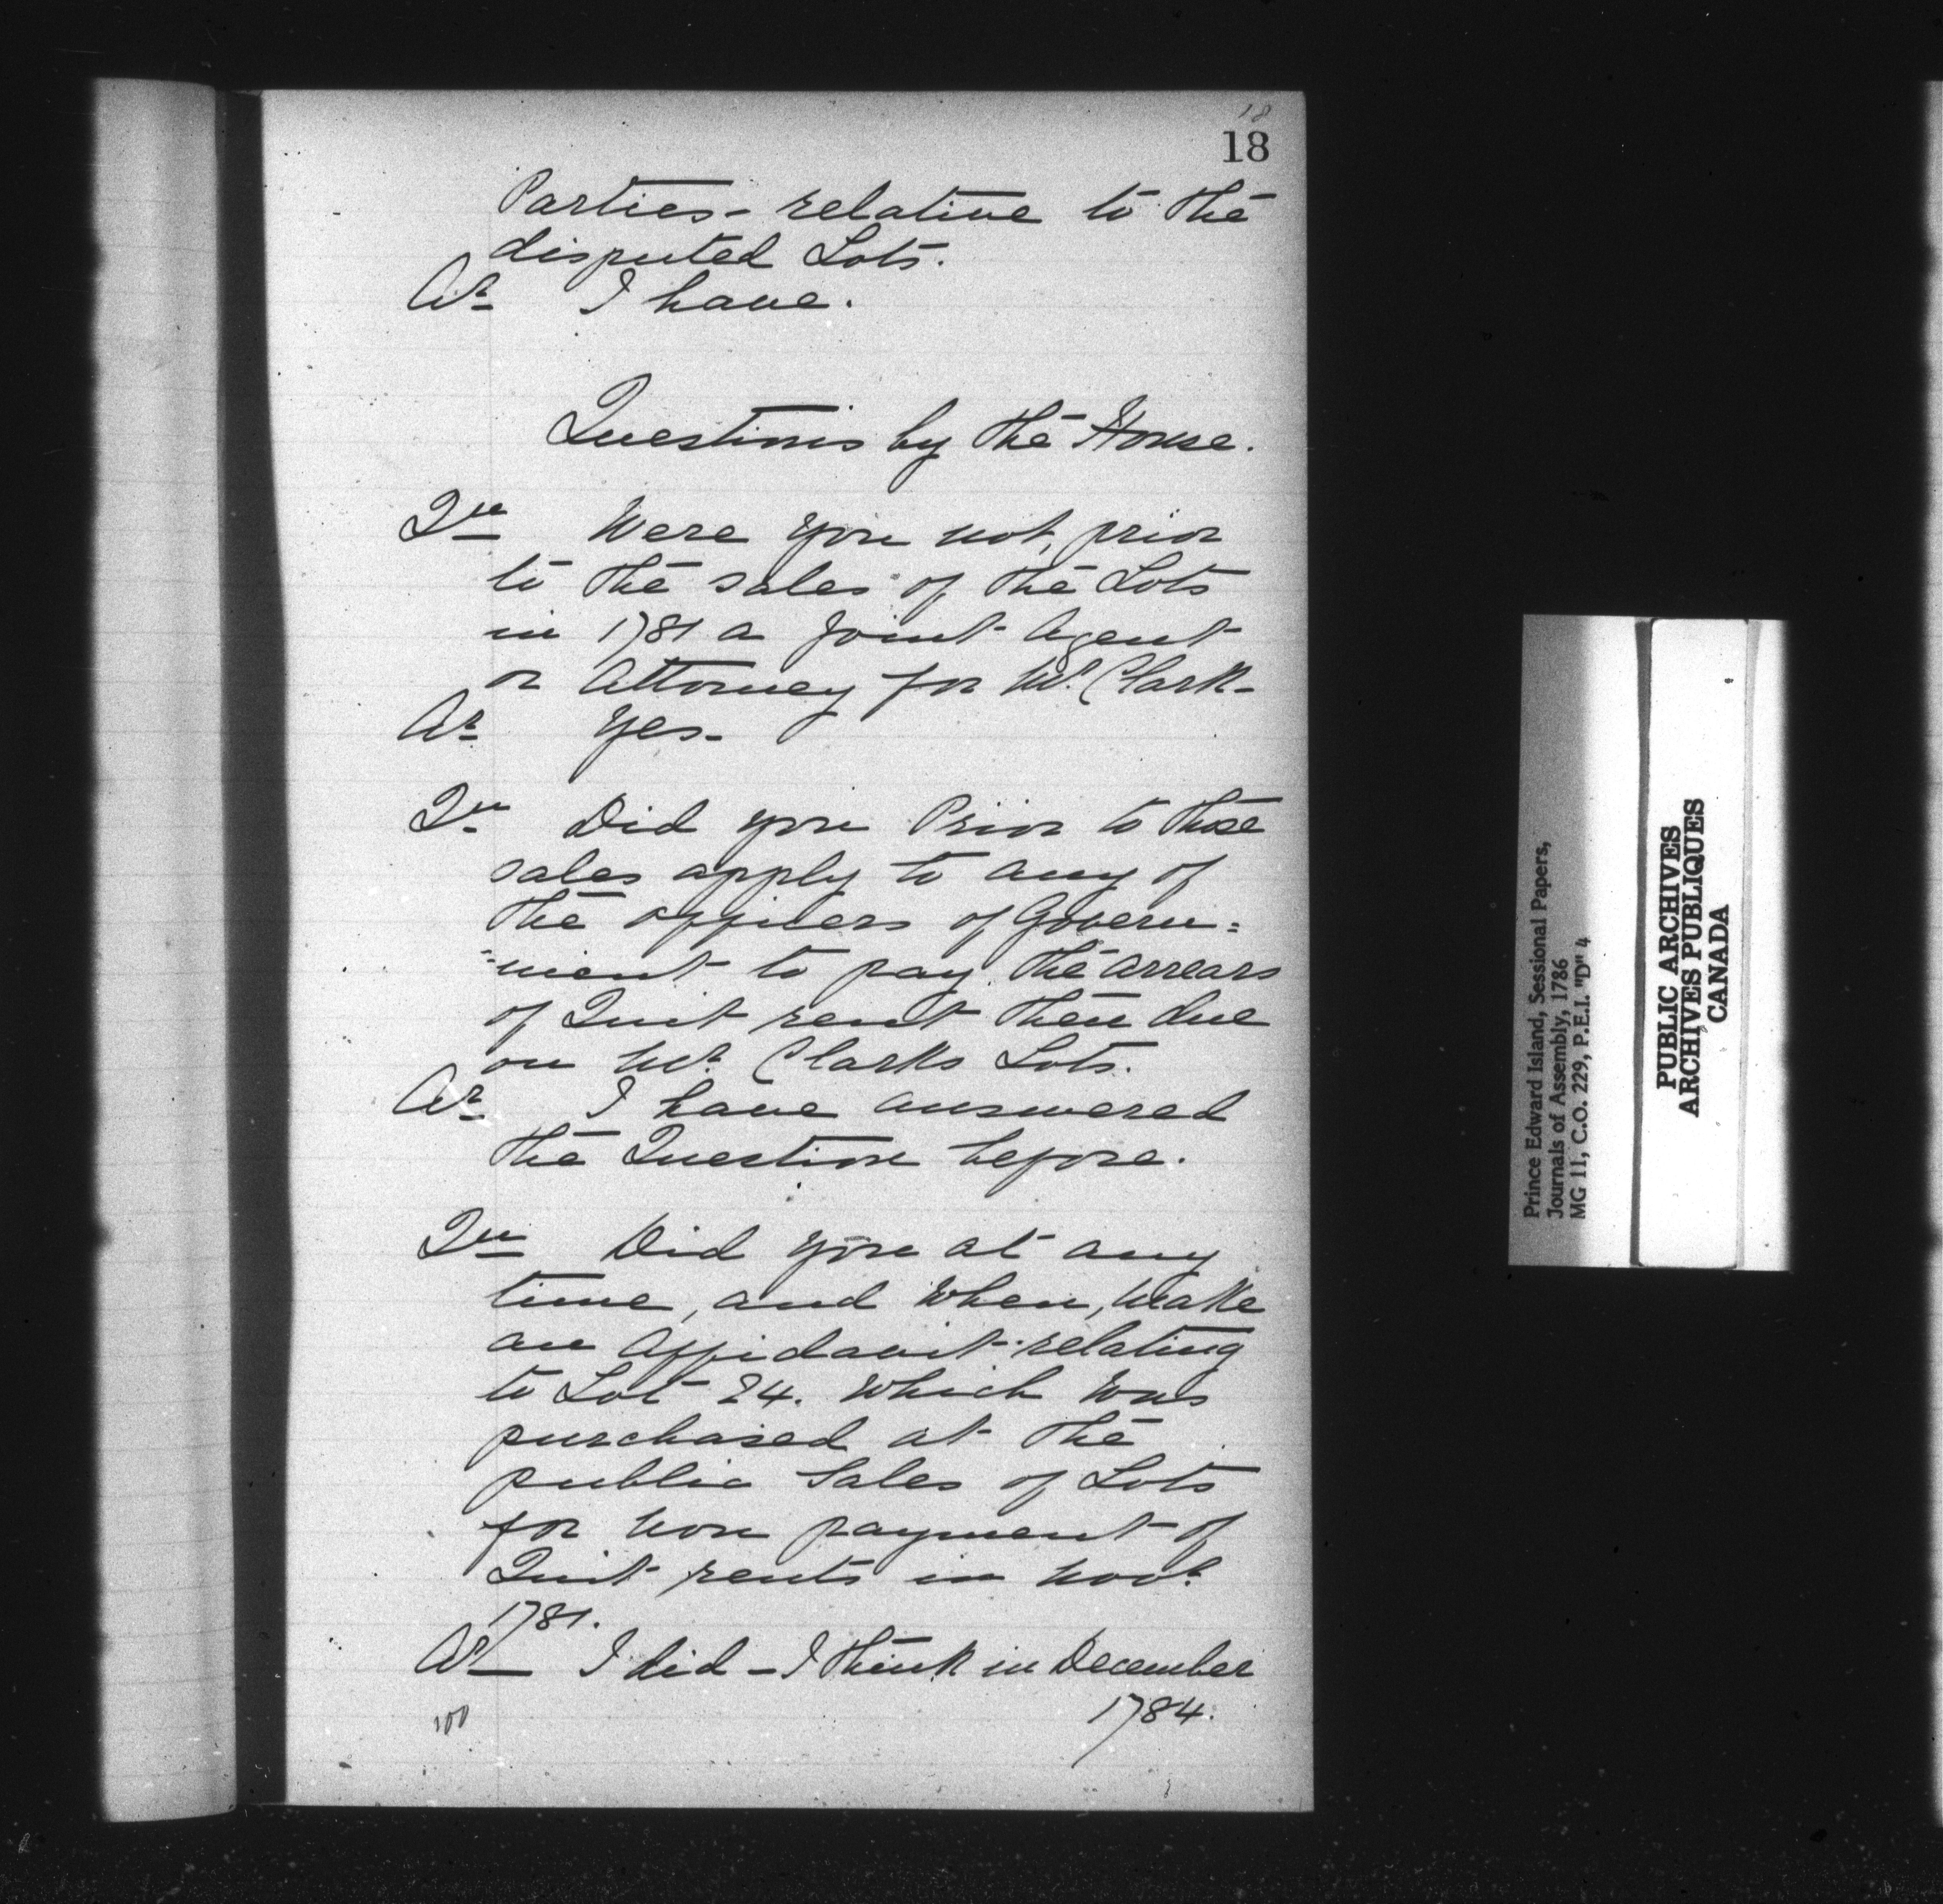 18
18
Parties - relative to the
disputed Lots.
Ar I have.
Questions by the House.
Qu Were you not, prior
to the sales of the Lots
in 1781 a Joint Agent
or Attorney for Mr. Clark-
Ar Yes-
Qu Did you Prior to those
sales apply to any of
the officers of Govern=
=ment to pay the arrears
of Quit rent then due
on Mr. Clarks Lots.
Ar I have answered
the Question before.
Qu Did you at any
time, and when, make
an Affidavit relating
to Lot 24. which was
purchased at the
public Sales of Lots
for non payment of
Quit rents in Novr.
1781.
Ar I did - I think in December
1784.
100
Prince Edward Island, Sessional Papers,
Journals of Assembly, 1786
MG 11, C.O. 229, P.E.I. "D" 4
PUBLIC ARCHIVES
ARCHIVES PUBLIQUES
CANADA